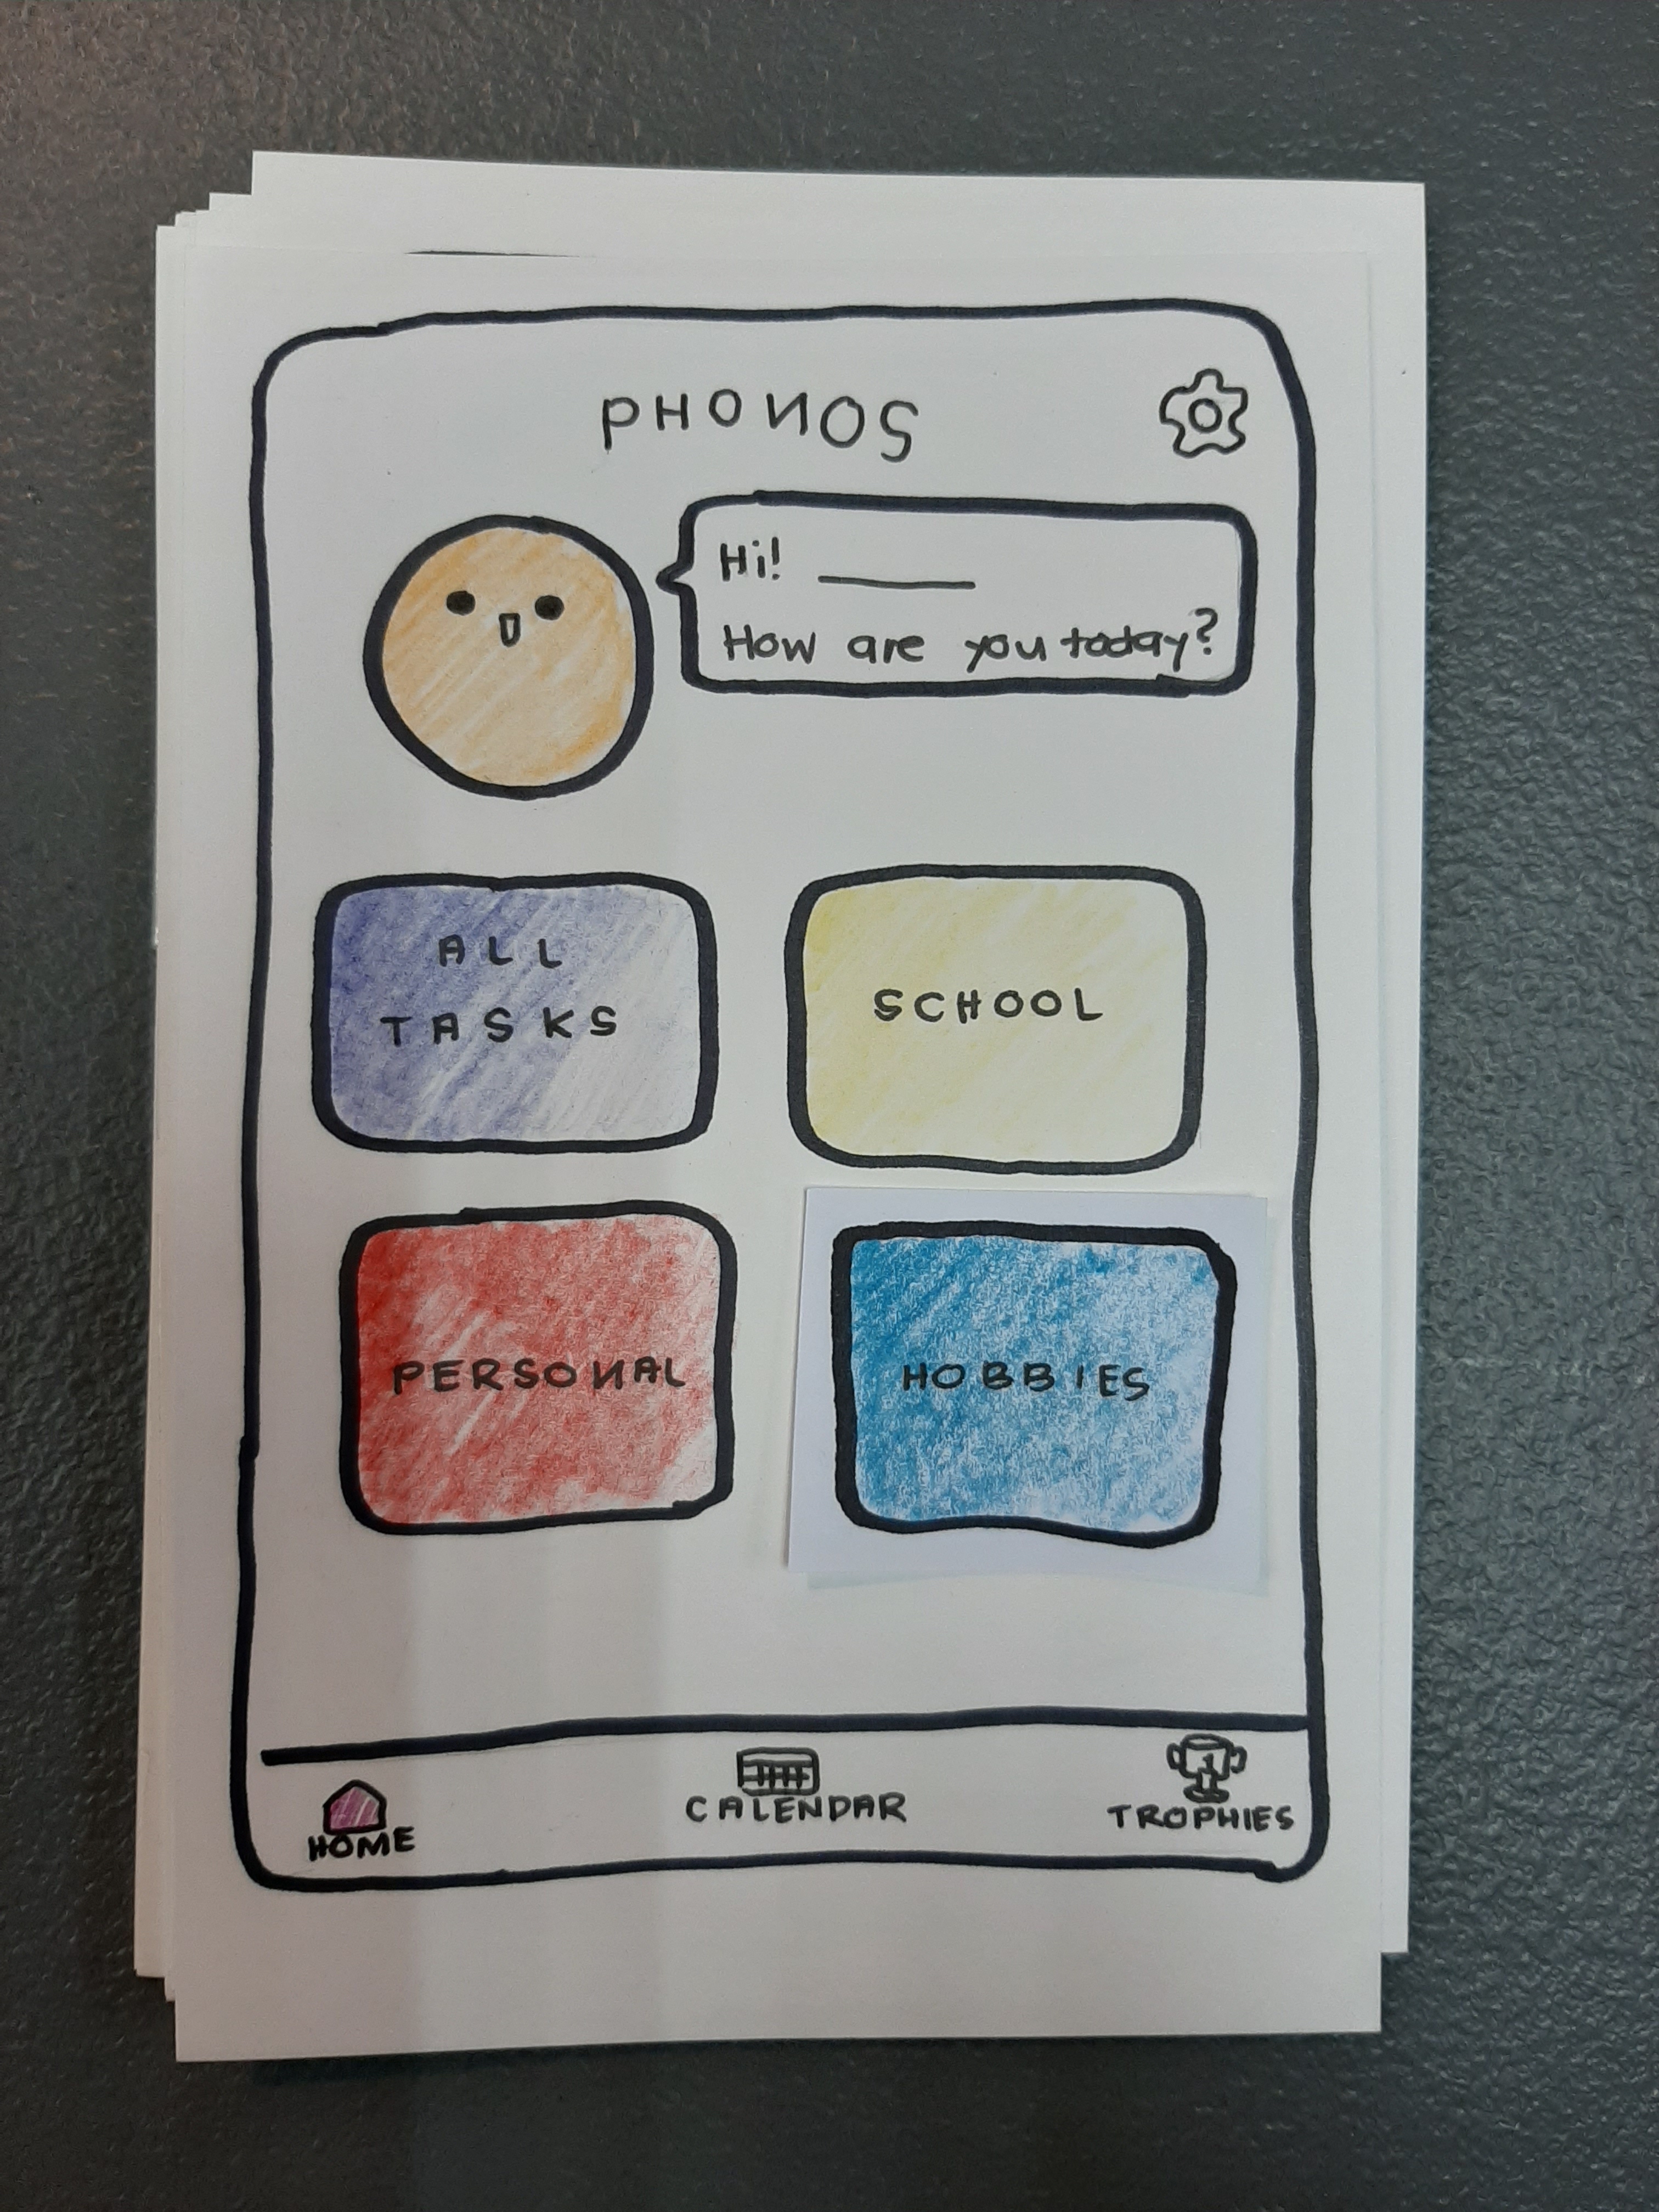 PHONOS
Hi! ______
How are you today?
ALL
TASKS
SCHOOL
PERSONAL
HOBBIES
HOME
CALENDAR
1
TROPHIES